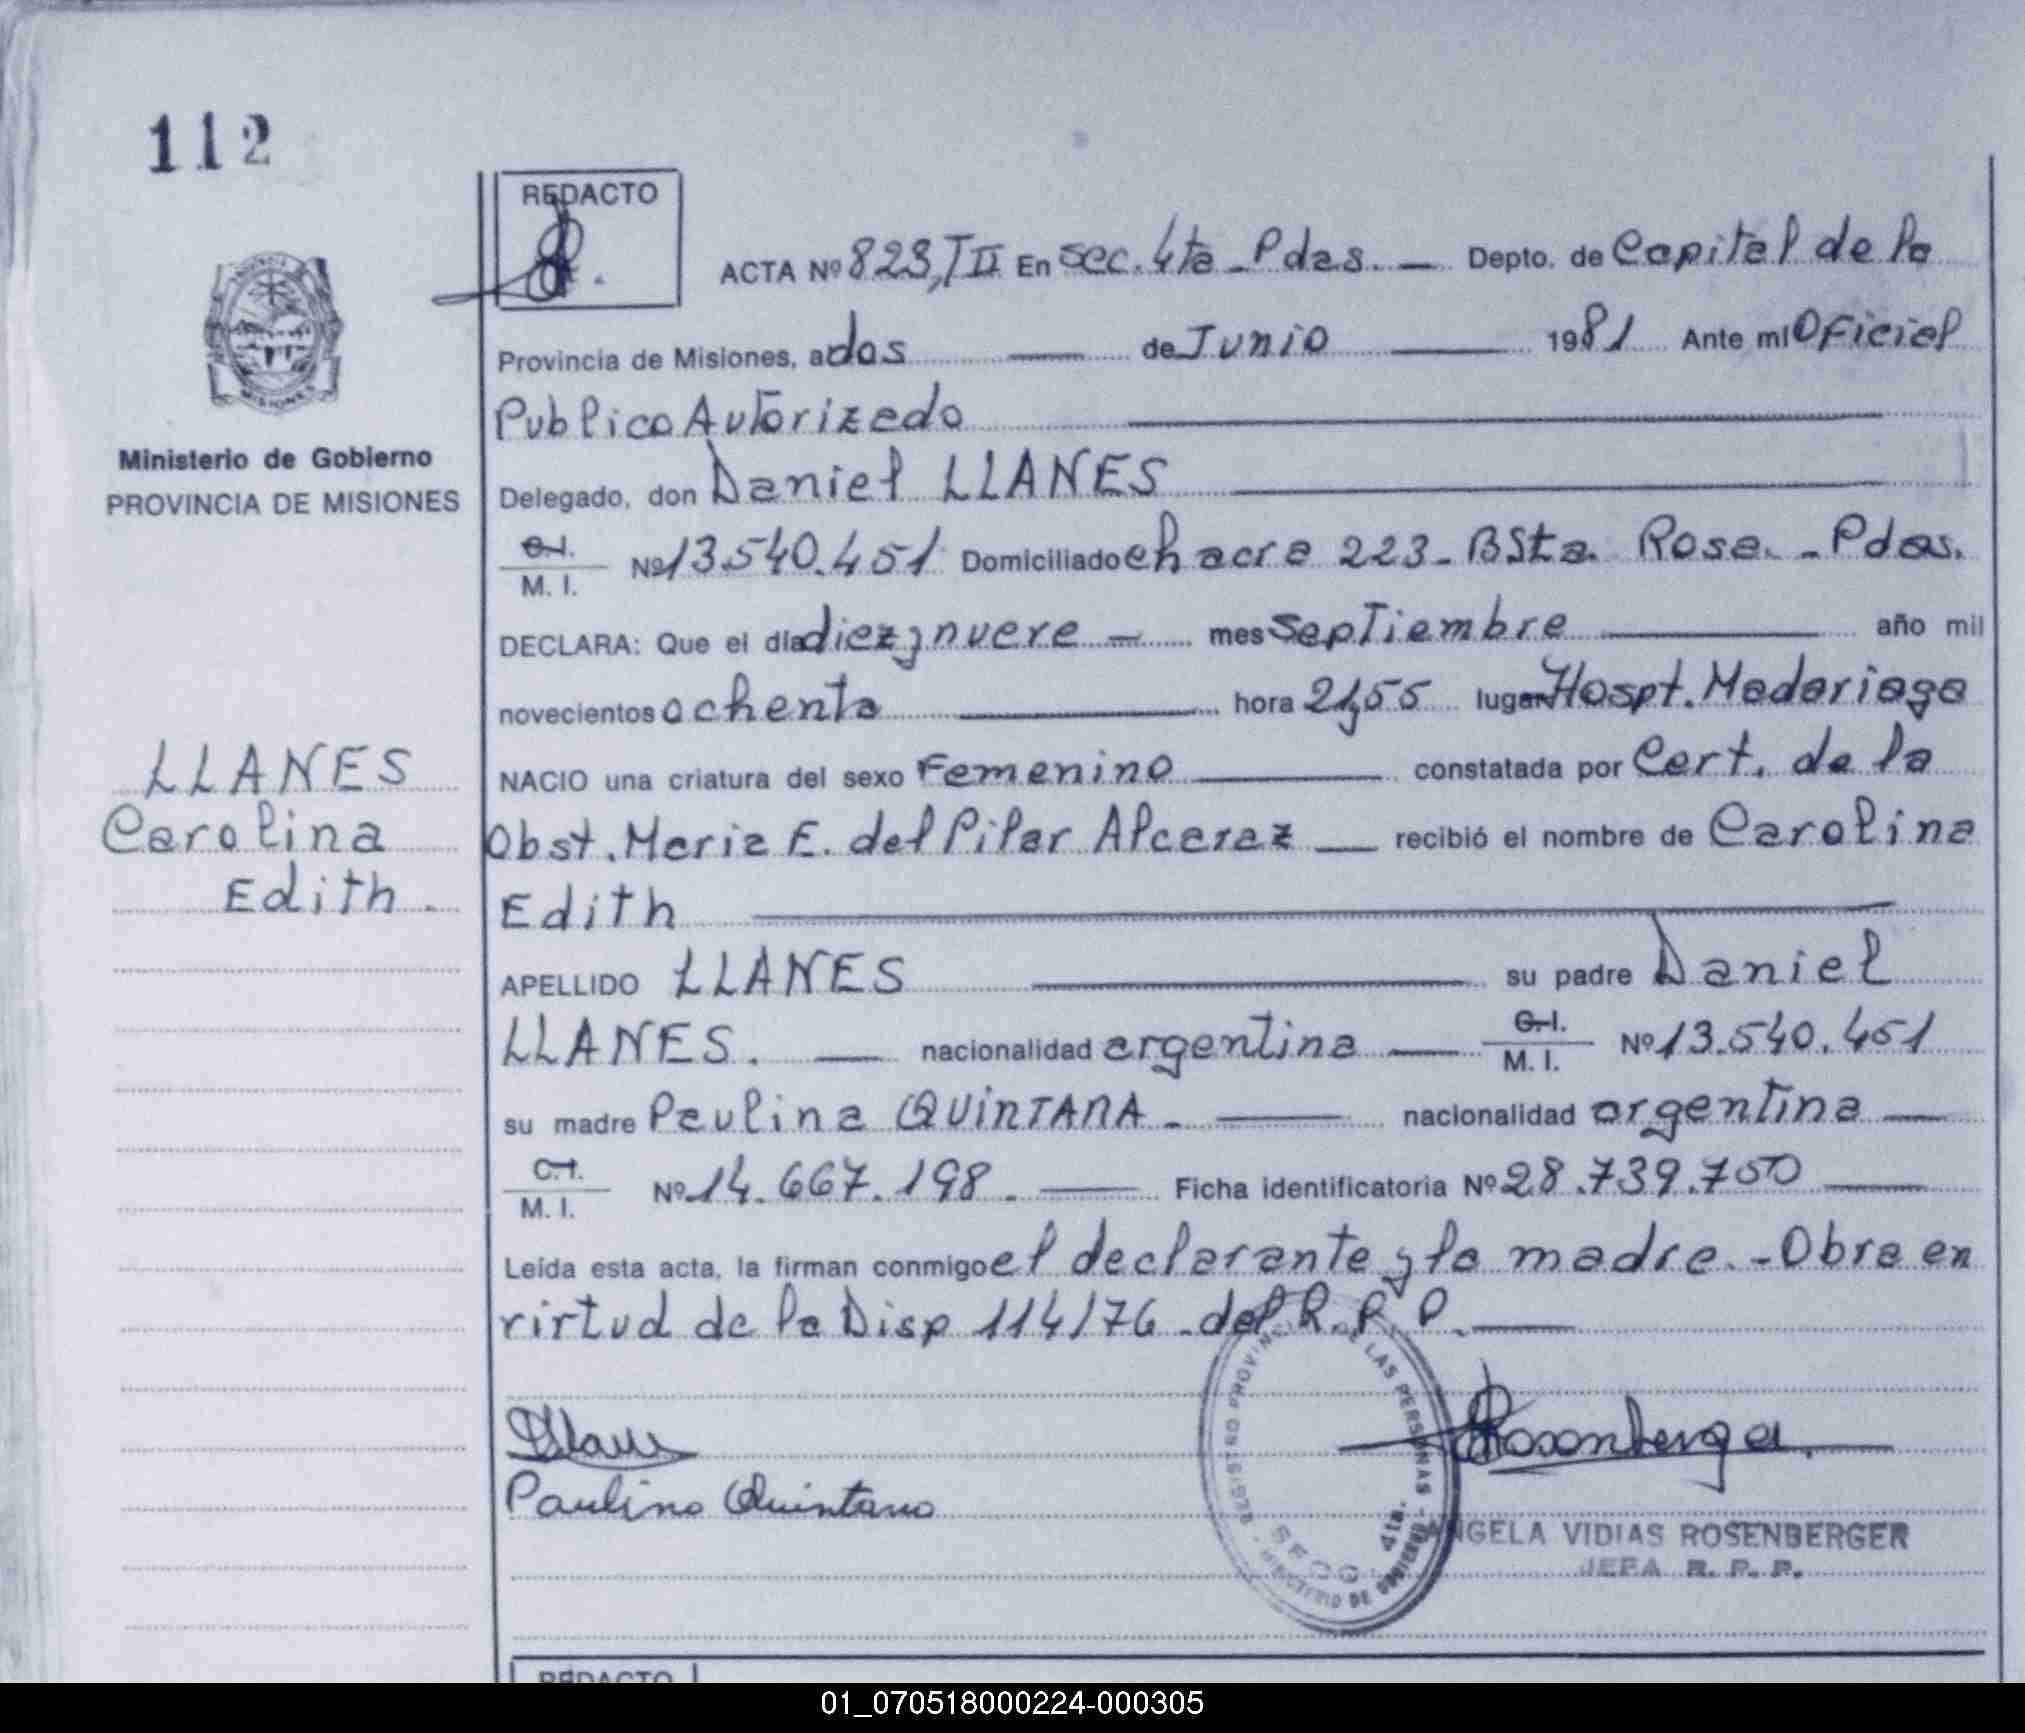 112
REDACTO
ACTA Nº 823, TII En sec. 4ta - Pdas. — Depto. de Capital de la
Provincia de Misiones, a dos — de Junio — 1981 Ante mí Oficial
Publico Autorizado —
Ministerio de Gobierno
PROVINCIA DE MISIONES
Delegado, don Daniel LLANES —
C.I. M. I. Nº 13.540.451 Domiciliado chacra 223 - B Sta. Rosa. - Pdas.
DECLARA: Que el día diez y nueve — mes Septiembre — año mil
novecientos ochenta — hora 21,55 lugar Hospt. Madariaga
NACIO una criatura del sexo Femenino — constatada por Cert. de la
Obst. Maria E. del Pilar Alcaraz — recibió el nombre de Carolina
Edith —
LLANES
Carolina
Edith.
APELLIDO LLANES — su padre Daniel
LLANES. — nacionalidad argentina — C.I. M. I. Nº 13.540.451
su madre Paulina QUINTANA. — nacionalidad argentina —
C.I. M. I. Nº 14.667.198. — Ficha identificatoria Nº 28.739.750 —
Leída esta acta, la firman conmigo el declarante y la madre. - Obra en
virtud de la Disp 114/76 - del R. P. P. —
Paulina Quintana
Rosenberger
REGISTRO PROVINCIAL DE LAS PERSONAS - MINISTERIO DE GOBIERNO -
SECC. 4ta.
ANGELA VIDIAS ROSENBERGER
JEFA R. P. P.
REDACTO
01_070518000224-000305